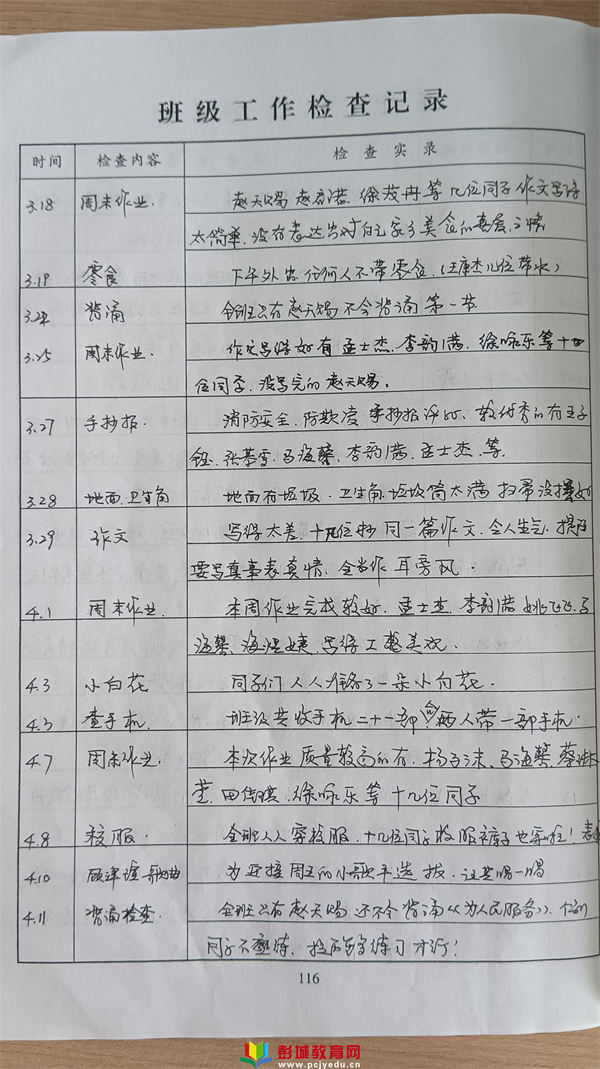 班级工作检查记录
时间 检查内容 检查实录
3.18 周末作业. 赵天赐 赵 徐 等几位同子作文写得
太简单, 没有表达出对自己家乡美食的喜爱之情
3.19 零食 下午外出, 任何人不带零食. (王康杰几位带水)
3.24 背诵 全班只有赵天赐不会背诵第一节
3.25 周末作业. 作文写得好有孟士杰. 李韵满. 徐咏乐等十
位同学, 没写完的赵天赐.
3.27 手抄报. 消防安全. 防欺凌手抄报评比, 较优秀的有王子
钰. 张慕雪. 马海馨. 李韵满. 孟士杰. 等.
3.28 地面. 卫生角 地面有垃圾. 卫生角垃圾筒太满 扫帚没摆好
3.29 作文 写得太差, 十几位抄同一篇作文, 令人生气,
要写真事表真情, 全当作耳旁风.
4.1 周末作业. 本周作业完成较好. 孟士杰. 李韵满 姚飞飞. 马
海馨. 写得工整美观.
4.3 小白花 同子们人人准备了一朵小白花.
4.3 查手机. 班级共收手机二十一部 两人带一部手机.
4.7 周末作业. 本次作业质量较高的有. 杨 马海馨. 蔡
萱. 田 徐咏乐等十几位同子
4.8 校服. 全班人人穿校服, 十几位同子校服裤子也穿啦!
4.10 歌曲 为迎接周五的小歌手选拔, 让其唱一唱
4.11 背诵检查. 全班只有赵天赐还不会背诵《为人民服务》. 个别
同子不熟练, 练习才行!
116
彭城教育网
www.pcjyedu.cn